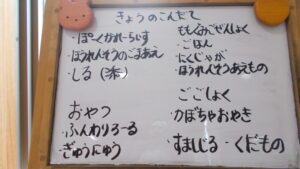 きょうのこんだて
・ぽーくかれーらいす
・ほうれんそうのごまあえ
・しる(茶)
おやつ
・ふんわりろーる
・ぎゅうにゅう
・ごはん
・にくじゃが
・ほうれんそうあえもの
ごごしょく
・かぼちゃおやき
・すましじる・くだもの